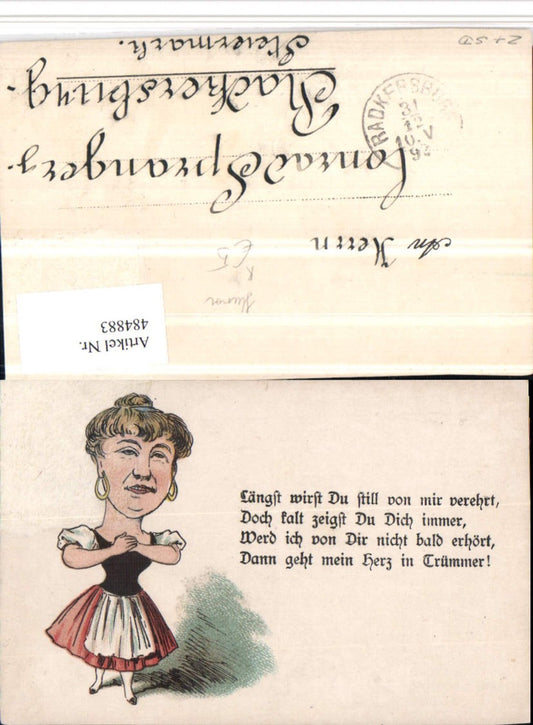 An Herrn
Conrad Spranger,
Radkersburg.
Steiermark.
RADKERSBURG
31
12
10.V
Humor
Artikel Nr.
484883
Längst wirst Du still von mir verehrt,
Doch kalt zeigst Du Dich immer,
Werd ich von Dir nicht bald erhört,
Dann geht mein Herz in Trümmer!